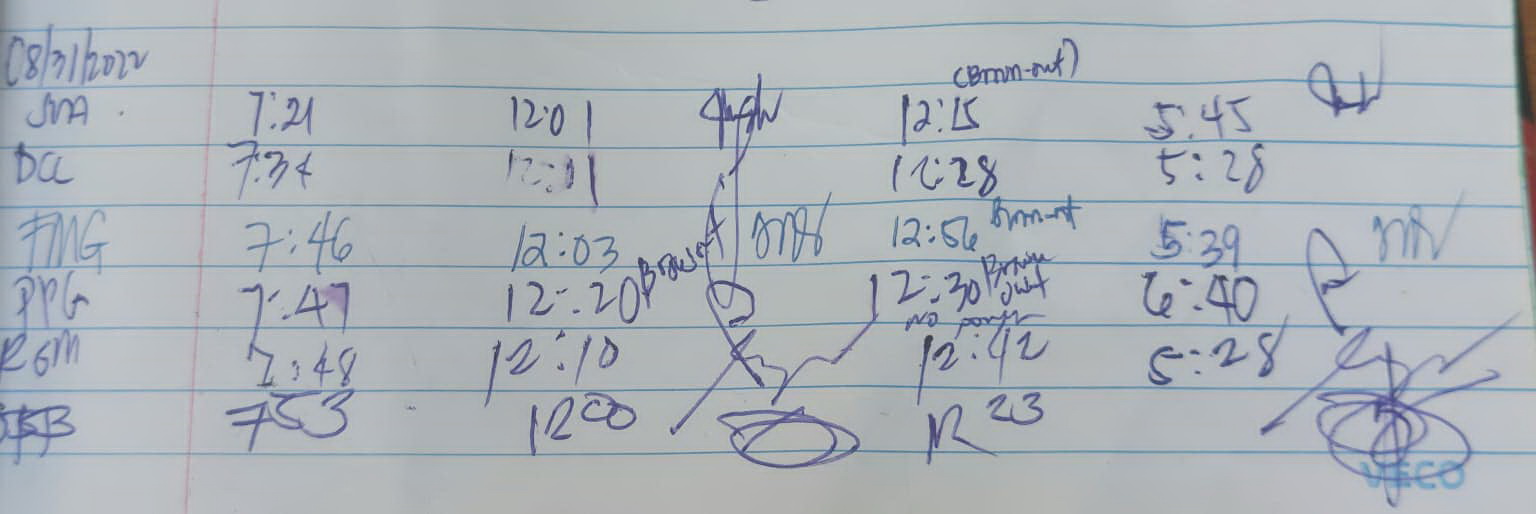 08/31/2022
(Brown-out)
7:21 12:01 12:15 5:45
DCC 7:34 12:01 12:28 5:28
FMG 7:46 12:03 12:56 Brown-out 5:39
PPG 7:47 12:20 Brownout 12:30 Brown out 6:40
no power
RGM 7:48 12:10 12:42 5:28
753 1200 1223
VECO